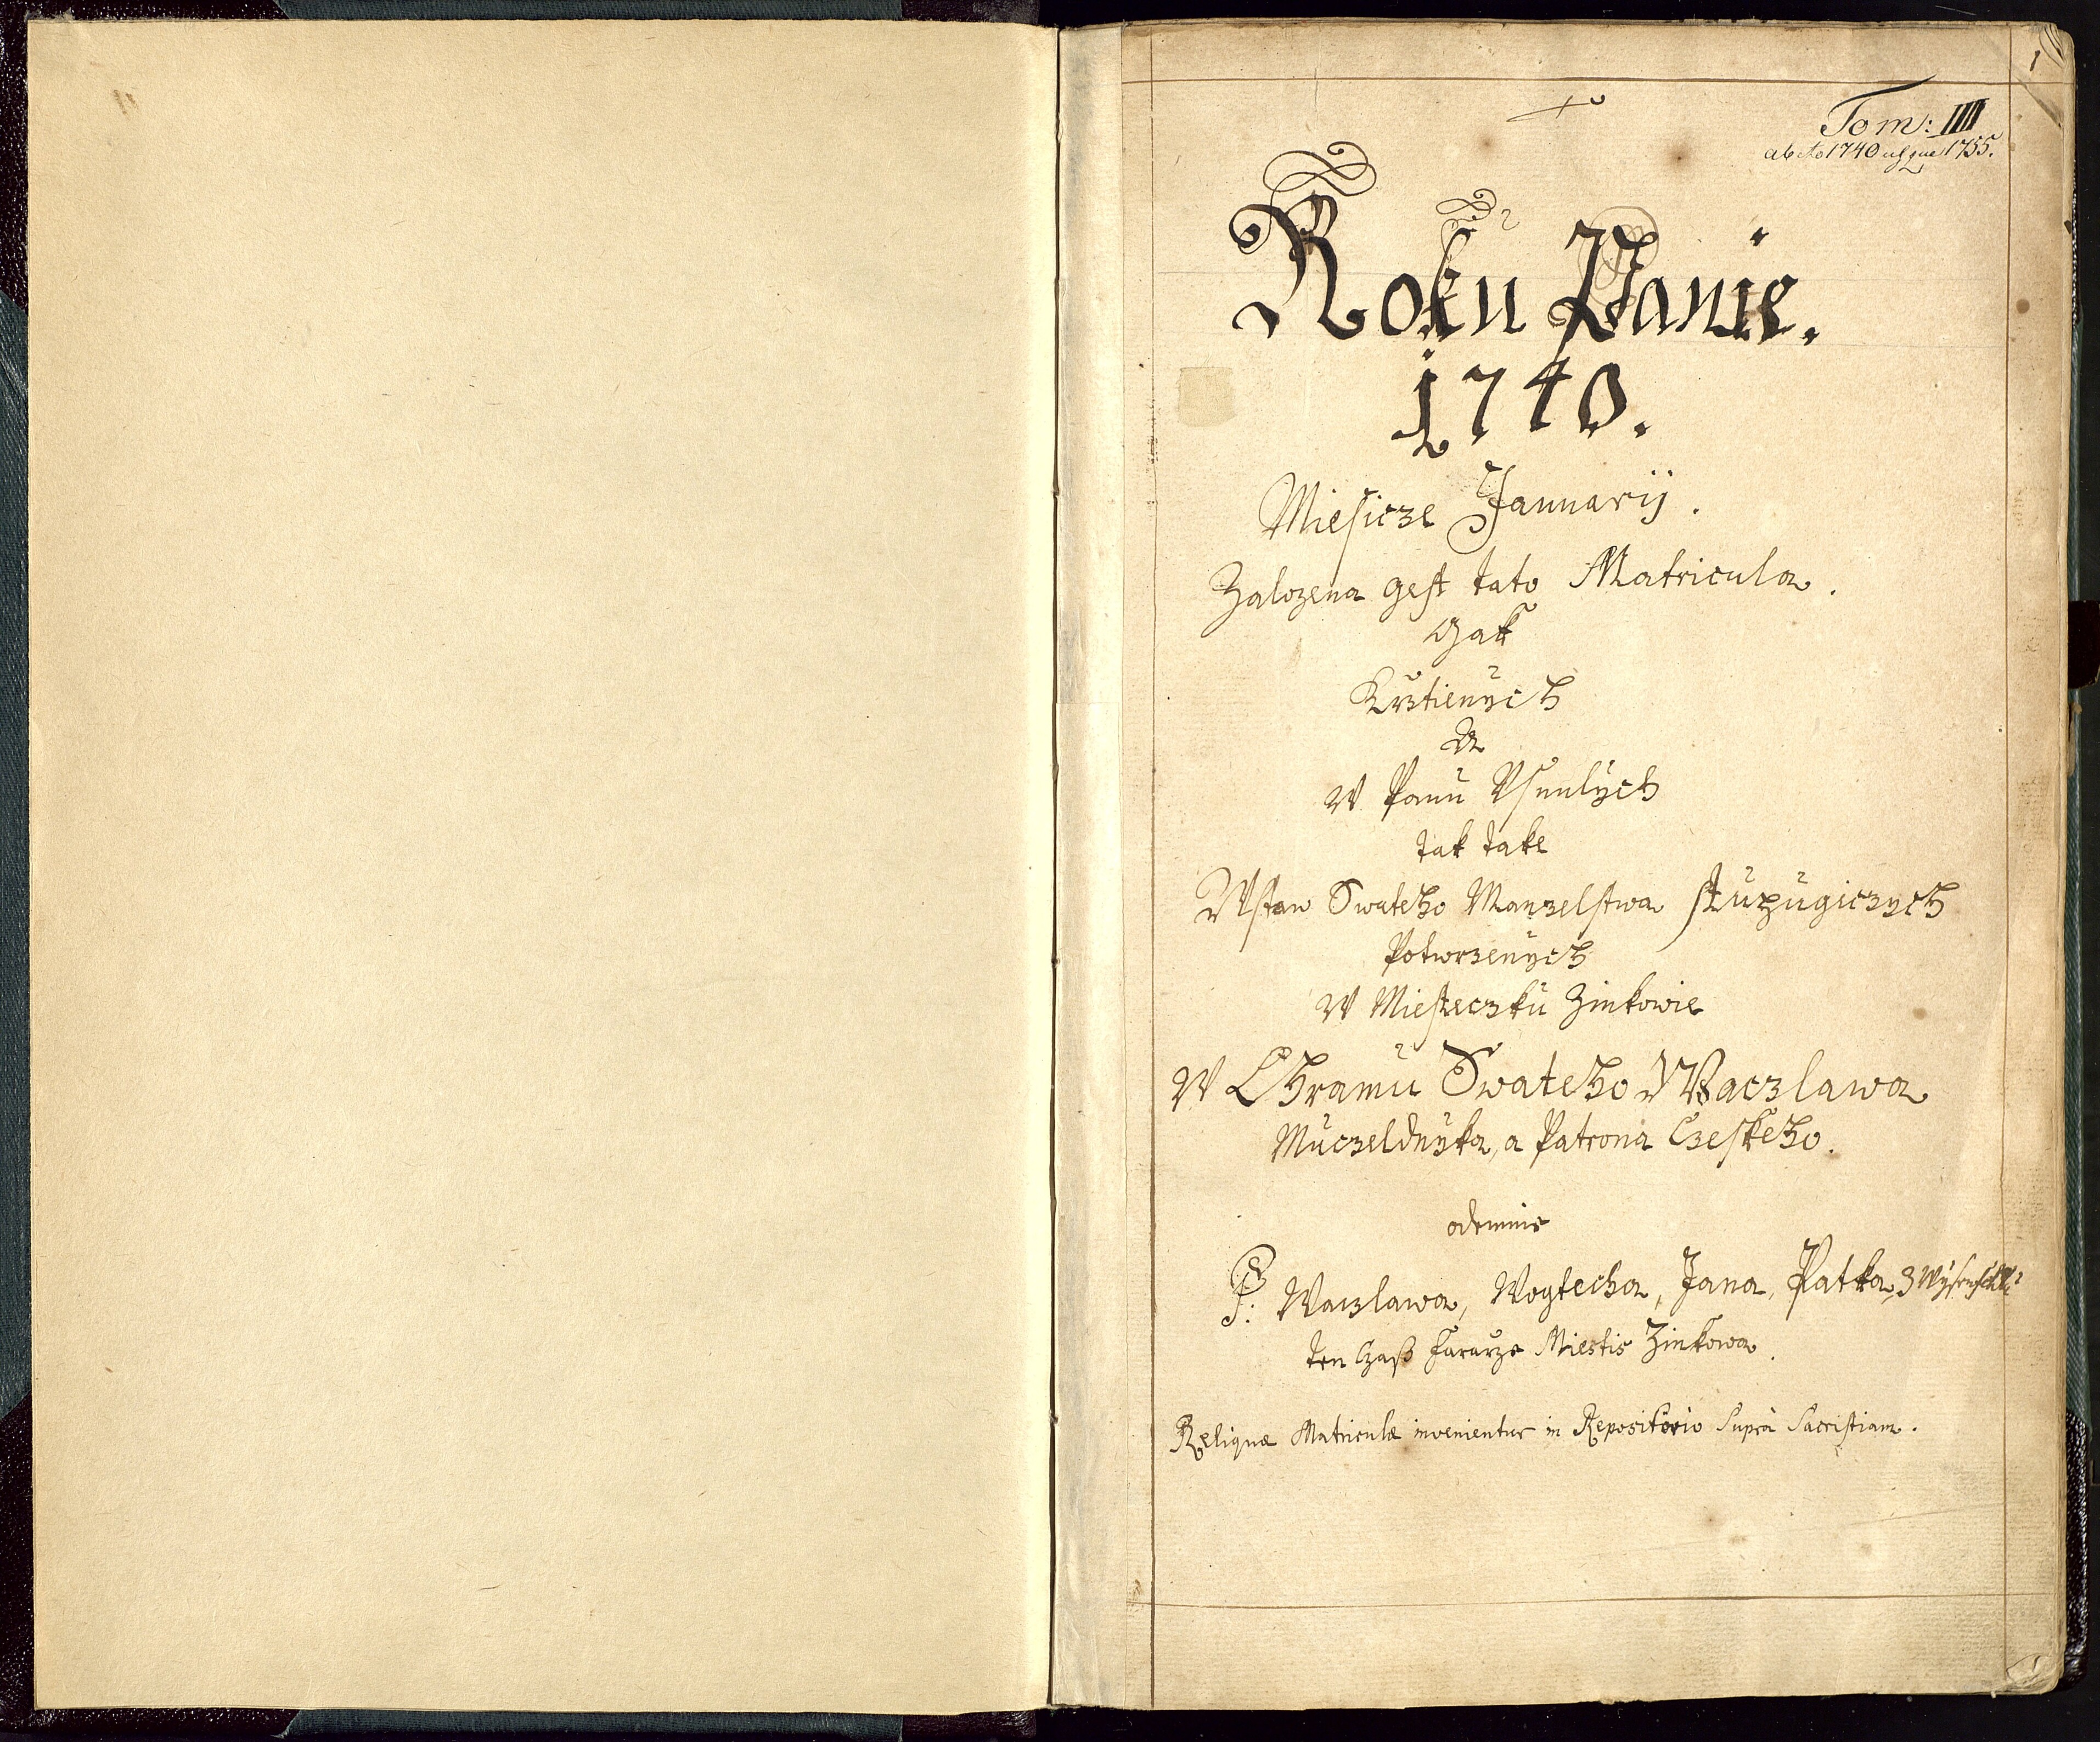 1
Tom: IIII
ab Ao 1740 usque 1755.
Roku Panie.
1740.
Miesicze Januarij.
Zalozena gest tato Matricula.
Gak
Krztienych
A
W Panu Usnulych
tak take
W Staw Swateho Manzelstwa stupugiczych
Potwrzenych
W Miesteczku Zinkowie
W Chramu Swateho Waczlawa
Muczeldnyka, a Patrona Czeskeho.
odemnie
P: Waczlawa, Wogtecha, Jana, Patka,
ten Czass Fararze Miestis Zinkowa.
Reliquae Matriculae invenientur in Repositorio supra Sacristiam.